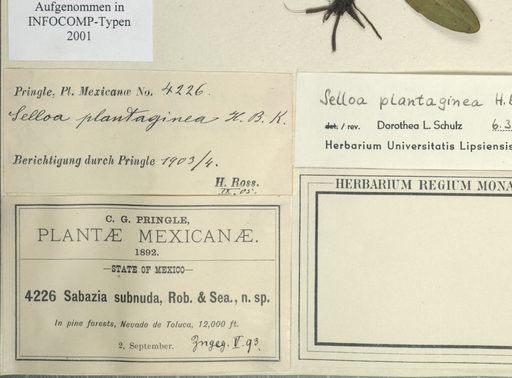 Aufgenommen in
INFOCOMP-Typen
2001
Pringle, Pl. Mexicanæ No. 4226.
Selloa plantaginea H. B. K.
Berichtigung durch Pringle 1903/4.
H. Ross.
IX. 05.
Selloa plantaginea H.
det. / rev. Dorothea L. Schulz 6.3
Herbarium Universitatis Lipsiensis
HERBARIUM REGIUM MONA
C. G. PRINGLE,
PLANTÆ MEXICANÆ.
1892.
—STATE OF MEXICO—
4226 Sabazia subnuda, Rob. & Sea., n. sp.
In pine forests, Nevado de Toluca, 12,000 ft.
2, September. Zngeg. V. 93.